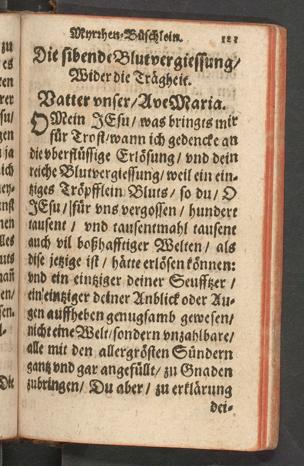 Myrrhen-Büschlein. 121
Die sibende Blutvergiessung/
Wider die Trägheit.
Vatter vnser/ Ave Maria.
O Mein JEsu/ was bringts mir
für Trost/ wann ich gedencke an
die vberflüssige Erlösung/ vnd dein
reiche Blutvergiessung/ weil ein ein-
tziges Tröpfflein Bluts/ so du/ O
JEsu/ für vns vergossen/ hundere
tausent/ vnd tausentmahl tausent
auch vil boßhafftiger Welten/ als
dise jetzige ist/ hätte erlösen können:
vnd ein eintziger deiner Seufftzer/
ein eintziger deiner Anblick oder Au-
gen auffheben genugsamb gewesen/
nicht eine Welt/ sondern vnzahlbare/
alle mit den allergrösten Sündern
gantz vnd gar angefüllt/ zu Gnaden
zubringen/ Du aber/ zu erklärung
dei-